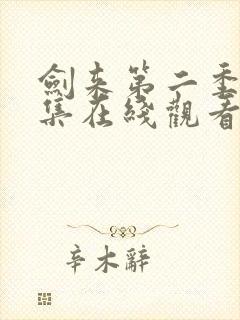 劍来第二季
集在綫觀看
辛木辭